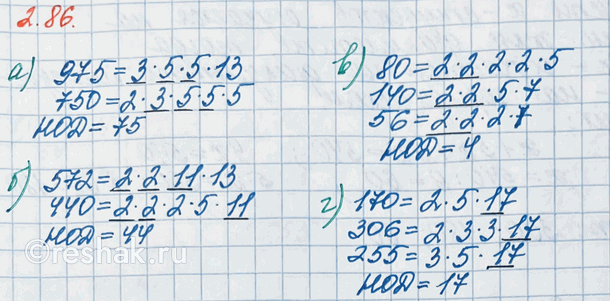 2.86.
а) 975 = 3·5·5·13
750 = 2·3·5·5·5
НОД = 75
б) 572 = 2·2·11·13
440 = 2·2·2·5·11
НОД = 44
в) 80 = 2·2·2·2·5
140 = 2·2·5·7
56 = 2·2·2·7
НОД = 4
г) 170 = 2·5·17
306 = 2·3·3·17
255 = 3·5·17
НОД = 17
©5terka.com